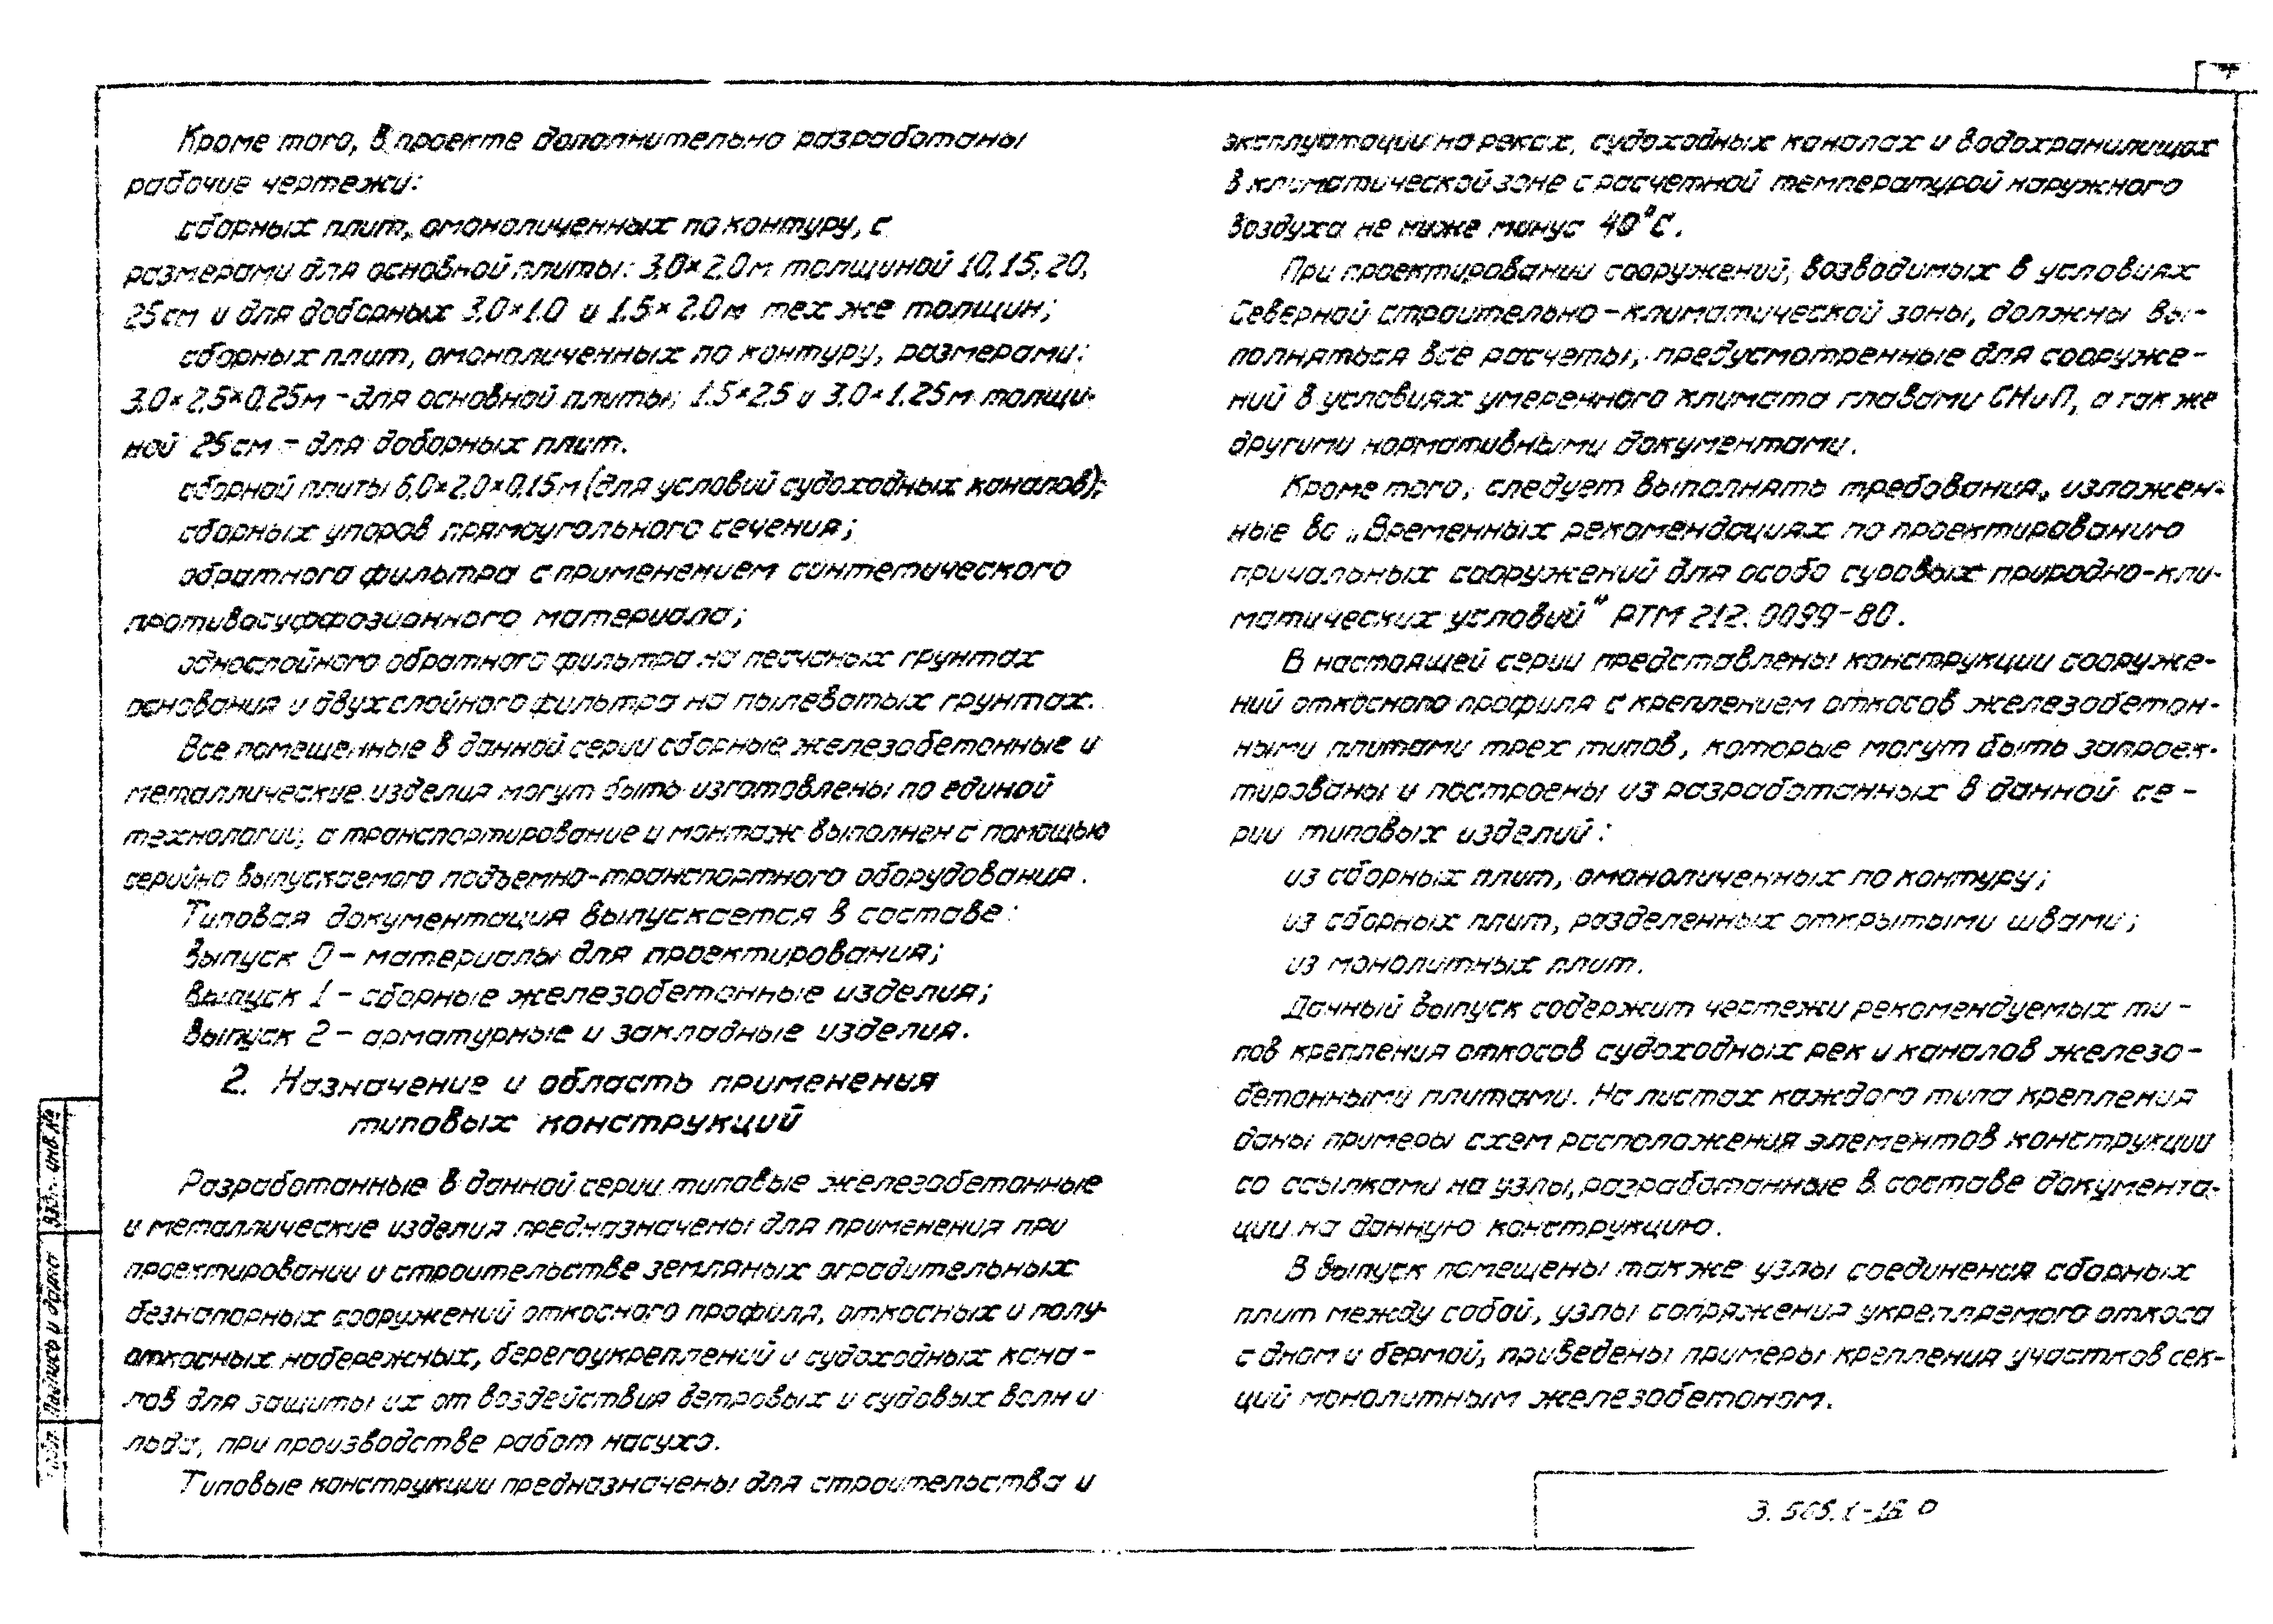 Кроме того, в проекте дополнительно разработаны
рабочие чертежи:
сборных плит, омоноличенных по контуру, с
размерами для основной плиты: 3,0×2,0м толщиной 10, 15, 20,
25 см и для доборных 3,0×1,0 и 1,5×2,0м тех же толщин;
сборных плит, омоноличенных по контуру, размерами:
3,0×2,5×0,25м – для основной плиты; 1,5×2,5 и 3,0×1,25м толщи-
ной 25 см – для доборных плит.
сборной плиты 6,0×2,0×0,15м (для условий судоходных каналов);
сборных упоров прямоугольного сечения;
обратного фильтра с применением синтетического
противосуффозионного материала;
однослойного обратного фильтра на песчаных грунтах
основания и двухслойного фильтра на пылеватых грунтах.
Все помещенные в данной серии сборные железобетонные и
металлические изделия могут быть изготовлены по единой
технологии, а транспортирование и монтаж выполнен с помощью
серийно выпускаемого подъемно-транспортного оборудования.
Типовая документация выпускается в составе:
выпуск 0 – материалы для проектирования;
выпуск 1 – сборные железобетонные изделия;
выпуск 2 – арматурные и закладные изделия.
2. Назначение и область применения
типовых конструкций
Разработанные в данной серии типовые железобетонные
и металлические изделия предназначены для применения при
проектировании и строительстве земляных оградительных
безнапорных сооружений откосного профиля, откосных и полу-
откосных набережных, берегоукреплений и судоходных кана-
лов для защиты их от воздействия ветровых и судовых волн и
льда, при производстве работ насухо.
Типовые конструкции предназначены для строительства и
эксплуатации на реках, судоходных каналах и водохранилищах
в климатической зоне с расчетной температурой наружного
воздуха не ниже минус 40°С.
При проектировании сооружений, возводимых в условиях
Северной строительно-климатической зоны, должны вы-
полняться все расчеты, предусмотренные для сооруже-
ний в условиях умеренного климата главами СНиП, а так же
другими нормативными документами.
Кроме того, следует выполнять требования, изложен-
ные во „Временных рекомендациях по проектированию
причальных сооружений для особо суровых природно-кли-
матических условий“ РТМ 212.0099-80.
В настоящей серии представлены конструкции сооруже-
ний откосного профиля с креплением откосов железобетон-
ными плитами трех типов, которые могут быть запроек-
тированы и построены из разработанных в данной се-
рии типовых изделий:
из сборных плит, омоноличенных по контуру;
из сборных плит, разделенных открытыми швами;
из монолитных плит.
Данный выпуск содержит чертежи рекомендуемых ти-
пов крепления откосов судоходных рек и каналов железо-
бетонными плитами. На листах каждого типа крепления
даны примеры схем расположения элементов конструкции
со ссылками на узлы, разработанные в составе документа-
ции на данную конструкцию.
В выпуск помещены также узлы соединения сборных
плит между собой, узлы сопряжения укрепляемого откоса
с дном и бермой, приведены примеры крепления участков сек-
ций монолитным железобетоном.
Взам. инв. №
Подпись и дата
подл.